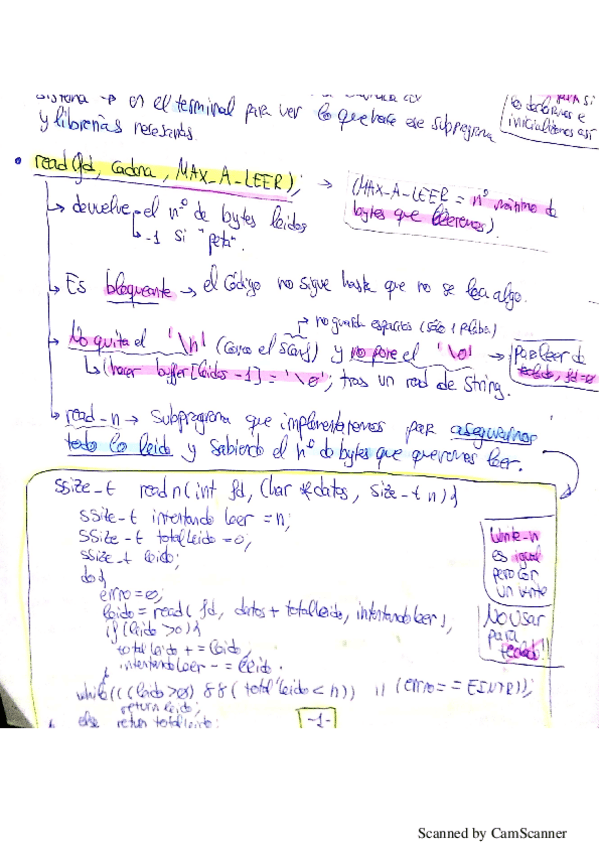 sistema → en el terminal para ver lo que hace ese subprograma
y librerías necesarias.
inicializiones así
• read(fd, cadena, MAX_A_LEER); → (MAX_A_LEER = nº máximo de
bytes que leeremos).
↳ devuelve el nº de bytes leidos
↳ -1 si "peta".
↳ Es bloqueante → el código no sigue hasta que no se lea algo.
→ no guarda espacios (sólo 1 palabra)
↳ No quita el '\n' (como el scanf) y no pone el '\0' → para leer de
teclado, fd=0
↳ (hacer buffer[leidos-1] = '\0'; tras un read de String.
↳ read_n → Subprograma que implementaremos par asegurarnos
todo lo leido y sabiendo el nº de bytes que queremos leer.
ssize_t readn(int fd, char *datos, size_t n){
ssize_t intentando leer = n;
ssize_t total leido = 0;
ssize_t leido;
do{
errno=0;
leido = read( fd, datos + total leido, intentando leer);
if(leido >0){
total leido += leido,
intentando leer -= leido.
}
while(((leido>0) && (total leido < n)) || (errno == EINTR));
return leido;
else return total leido;
Write_n
es igual
pero con
un write
No usar
para
teclado!!
-1-
Scanned by CamScanner